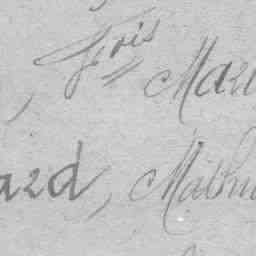 , Fois Mar
ard, Mathu